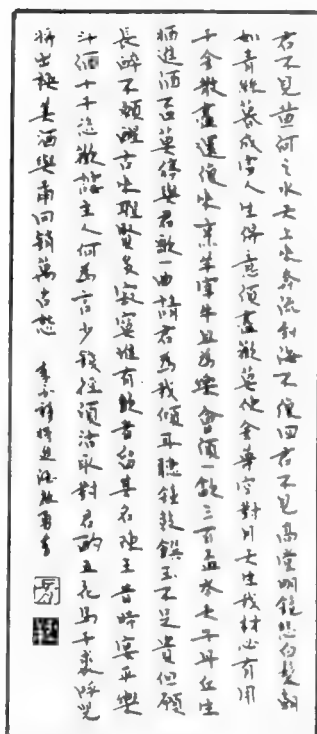 君不見黄河之水天上來奔流到海不復回君不見高堂明鏡悲白髮朝
如青絲暮成雪人生得意須盡歡莫使金尊空對月天生我材必有用
千金散盡還復來烹羊宰牛且為樂會須一飲三百盃岑夫子丹丘生
將進酒君莫停與君歌一曲請君為我傾耳聽鐘鼓饌玉不足貴但願
長醉不願醒古來聖賢多寂寞惟有飲者留其名陳王昔時宴平樂
斗酒十千恣歡謔主人何為言少錢徑須沽取對君酌五花馬千裘呼兒
將出換美酒與爾同銷萬古愁 李白詩將進酒